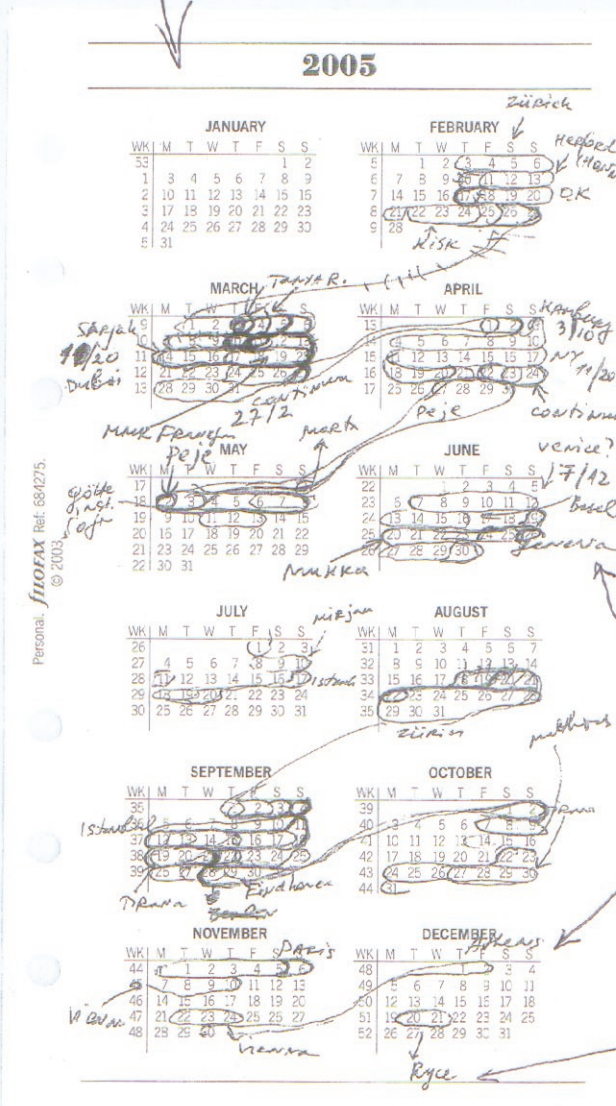 2005
Zürich
JANUARY
WK M T W T F S S
53 1 2
1 3 4 5 6 7 8 9
2 10 11 12 13 14 15 16
3 17 18 19 20 21 22 23
4 24 25 26 27 28 29 30
5 31
FEBRUARY
WK M T W T F S S
5 1 2 3 4 5 6
6 7 8 9 10 11 12 13
7 14 15 16 17 18 19 20
8 21 22 23 24 25 26 27
9 28
Herford
O.K
Kisk
MARCH
TANYA R.
WK M T W T F S S
9 1 2 3 4 5 6
10 7 8 9 10 11 12 13
11 14 15 16 17 18 19 20
12 21 22 23 24 25 26 27
13 28 29 30 31
Dubai
continuum
27/2
APRIL
WK M T W T F S S
13 1 2 3
14 4 5 6 7 8 9 10
15 11 12 13 14 15 16 17
16 18 19 20 21 22 23 24
17 25 26 27 28 29 30
Hamburg
3/10
NY
11/20
Peje
MAY
Peje
WK M T W T F S S
17 1
18 2 3 4 5 6 7 8
19 9 10 11 12 13 14 15
20 16 17 18 19 20 21 22
21 23 24 25 26 27 28 29
22 30 31
JUNE
WK M T W T F S S
22 1 2 3 4 5
23 6 7 8 9 10 11 12
24 13 14 15 16 17 18 19
25 20 21 22 23 24 25 26
26 27 28 29 30
Venice?
7/12
Basel
Personal. FILOFAX Ref: 684275.
© 2003
JULY
Mirjam
WK M T W T F S S
26 1 2 3
27 4 5 6 7 8 9 10
28 11 12 13 14 15 16 17
29 18 19 20 21 22 23 24
30 25 26 27 28 29 30 31
AUGUST
WK M T W T F S S
31 1 2 3 4 5 6 7
32 8 9 10 11 12 13 14
33 15 16 17 18 19 20 21
34 22 23 24 25 26 27 28
35 29 30 31
SEPTEMBER
WK M T W T F S S
35 1 2 3 4
36 5 6 7 8 9 10 11
37 12 13 14 15 16 17 18
38 19 20 21 22 23 24 25
39 26 27 28 29 30
Istanbul
Tirana
Eindhoven
OCTOBER
WK M T W T F S S
39 1 2
40 3 4 5 6 7 8 9
41 10 11 12 13 14 15 16
42 17 18 19 20 21 22 23
43 24 25 26 27 28 29 30
44 31
NOVEMBER
PARIS
WK M T W T F S S
44 1 2 3 4 5 6
45 7 8 9 10 11 12 13
46 14 15 16 17 18 19 20
47 21 22 23 24 25 26 27
48 28 29 30
Vienna
DECEMBER
Athens
WK M T W T F S S
48 1 2 3 4
49 5 6 7 8 9 10 11
50 12 13 14 15 16 17 18
51 19 20 21 22 23 24 25
52 26 27 28 29 30 31